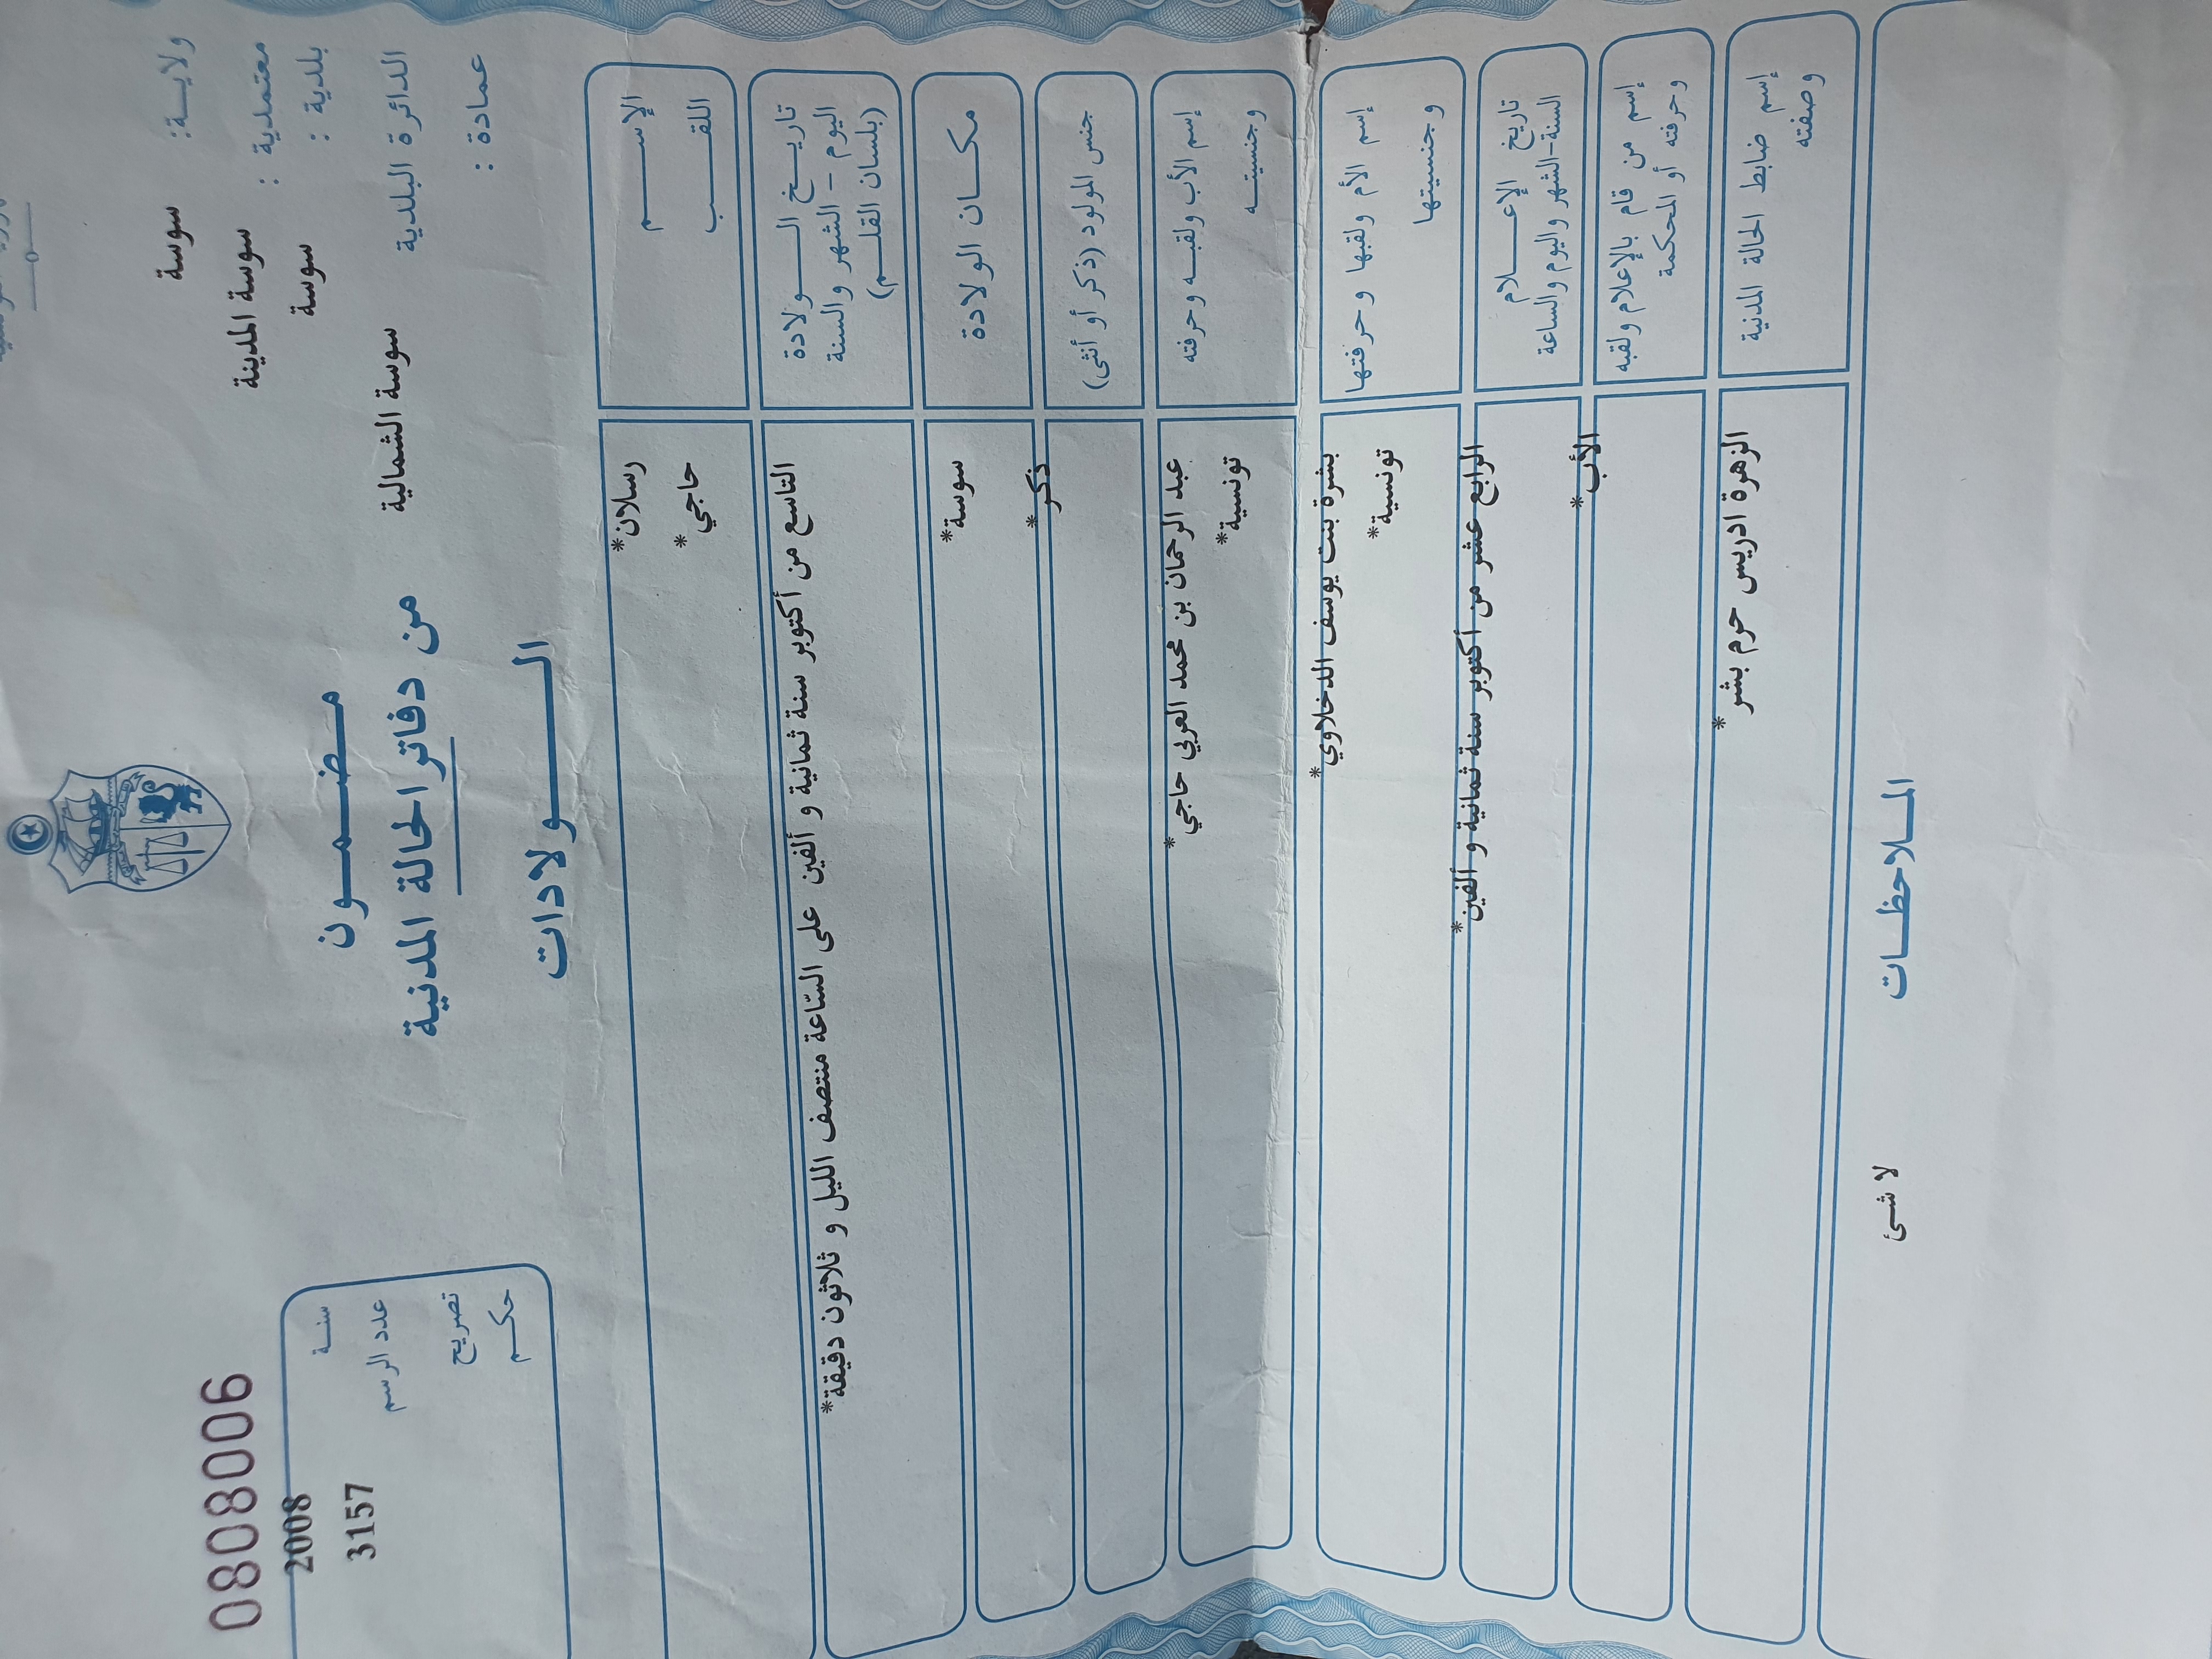 ولايـــة: سوسة
معتمدية : سوسة المدينة
بلدية : سوسة
الدائرة البلدية سوسة الشمالية
عمادة :
مـضـمـون
من دفاتر الحالة المدنية
الـولادات
0808006
سنـة 2008
عدد الرسم 3157
تصريح
حكـم
الإســـم رسلان*
اللقـــب حاجي*
تاريـخ الــولادة
اليوم - الشهر والسنة
(بلسان القلــم)
التاسع من أكتوبر سنة ثمانية و ألفين على السّاعة منتصف الليل و ثلاثون دقيقة*
مكـان الولادة سوسة*
جنس المولود (ذكر أو أنثى) ذكر*
إسم الأب ولقبـه وحرفته عبد الرحمان بن محمد العربي حاجي*
وجنسيتـــه تونسية*
إسم الأم ولقبها وحرفتها بشرة بنت يوسف الدخلاوي*
وجنسيتها تونسية*
تاريخ الإعـــلام
السنة-الشهر واليوم والساعة
الرابع عشر من أكتوبر سنة ثمانية و ألفين*
إسم من قام بالإعلام ولقبه
وحرفته أو المحكمة
الأب*
إسم ضابط الحالة المدنية
وصفته
الزهرة ادريس حرم بشر*
المـلاحظـات
لا شئ